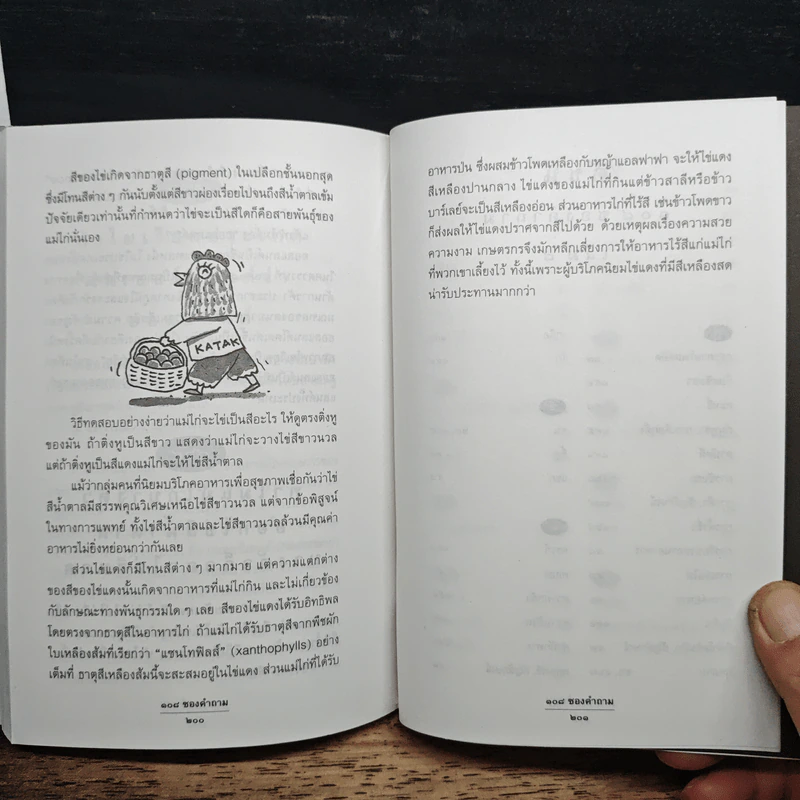 สีของไข่เกิดจากธาตุสี (pigment) ในเปลือกชั้นนอกสุด
ซึ่งมีโทนสีต่าง ๆ กันนับตั้งแต่สีขาวผ่องเรื่อยไปจนถึงสีน้ำตาลเข้ม
ปัจจัยเดียวเท่านั้นที่กำหนดว่าไข่จะเป็นสีใดก็คือสายพันธุ์ของ
แม่ไก่นั่นเอง
KATAK
วิธีทดสอบอย่างง่ายว่าแม่ไก่จะไข่เป็นสีอะไร ให้ดูตรงติ่งหู
ของมัน ถ้าติ่งหูเป็นสีขาว แสดงว่าแม่ไก่จะวางไข่สีขาวนวล
แต่ถ้าติ่งหูเป็นสีแดงแม่ไก่จะให้ไข่สีน้ำตาล
แม้ว่ากลุ่มคนที่นิยมบริโภคอาหารเพื่อสุขภาพเชื่อกันว่าไข่
สีน้ำตาลมีสรรพคุณวิเศษเหนือไข่สีขาวนวล แต่จากข้อพิสูจน์
ในทางการแพทย์ ทั้งไข่สีน้ำตาลและไข่สีขาวนวลล้วนมีคุณค่า
อาหารไม่ยิ่งหย่อนกว่ากันเลย
ส่วนไข่แดงก็มีโทนสีต่าง ๆ มากมาย แต่ความแตกต่าง
ของสีของไข่แดงนั้นเกิดจากอาหารที่แม่ไก่กิน และไม่เกี่ยวข้อง
กับลักษณะทางพันธุกรรมใด ๆ เลย สีของไข่แดงได้รับอิทธิพล
โดยตรงจากธาตุสีในอาหารไก่ ถ้าแม่ไก่ได้รับธาตุสีจากพืชผัก
ใบเหลืองส้มที่เรียกว่า "แซนโทฟิลส์" (xanthophylls) อย่าง
เต็มที่ ธาตุสีเหลืองส้มนี้จะสะสมอยู่ในไข่แดง ส่วนแม่ไก่ที่ได้รับ
๑๐๘ ซองคำถาม
๒๐๐
อาหารป่น ซึ่งผสมข้าวโพดเหลืองกับหญ้าแอลฟาฟา จะให้ไข่แดง
สีเหลืองปานกลาง ไข่แดงของแม่ไก่ที่กินแต่ข้าวสาลีหรือข้าว
บาร์เลย์จะเป็นสีเหลืองอ่อน ส่วนอาหารไก่ที่ไร้สี เช่นข้าวโพดขาว
ก็ส่งผลให้ไข่แดงปราศจากสีไปด้วย ด้วยเหตุผลเรื่องความสวย
ความงาม เกษตรกรจึงมักหลีกเลี่ยงการให้อาหารไร้สีแก่แม่ไก่
ที่พวกเขาเลี้ยงไว้ ทั้งนี้เพราะผู้บริโภคนิยมไข่แดงที่มีสีเหลืองสด
น่ารับประทานมากกว่า
๑๐๘ ซองคำถาม
๒๐๑